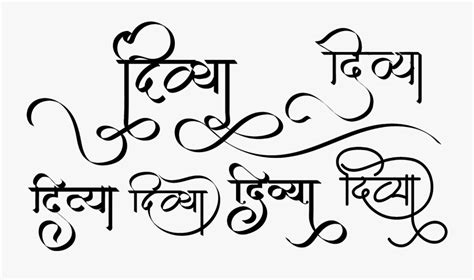 दिव्या दिव्या
दिव्या दिव्या दिव्या दिव्या